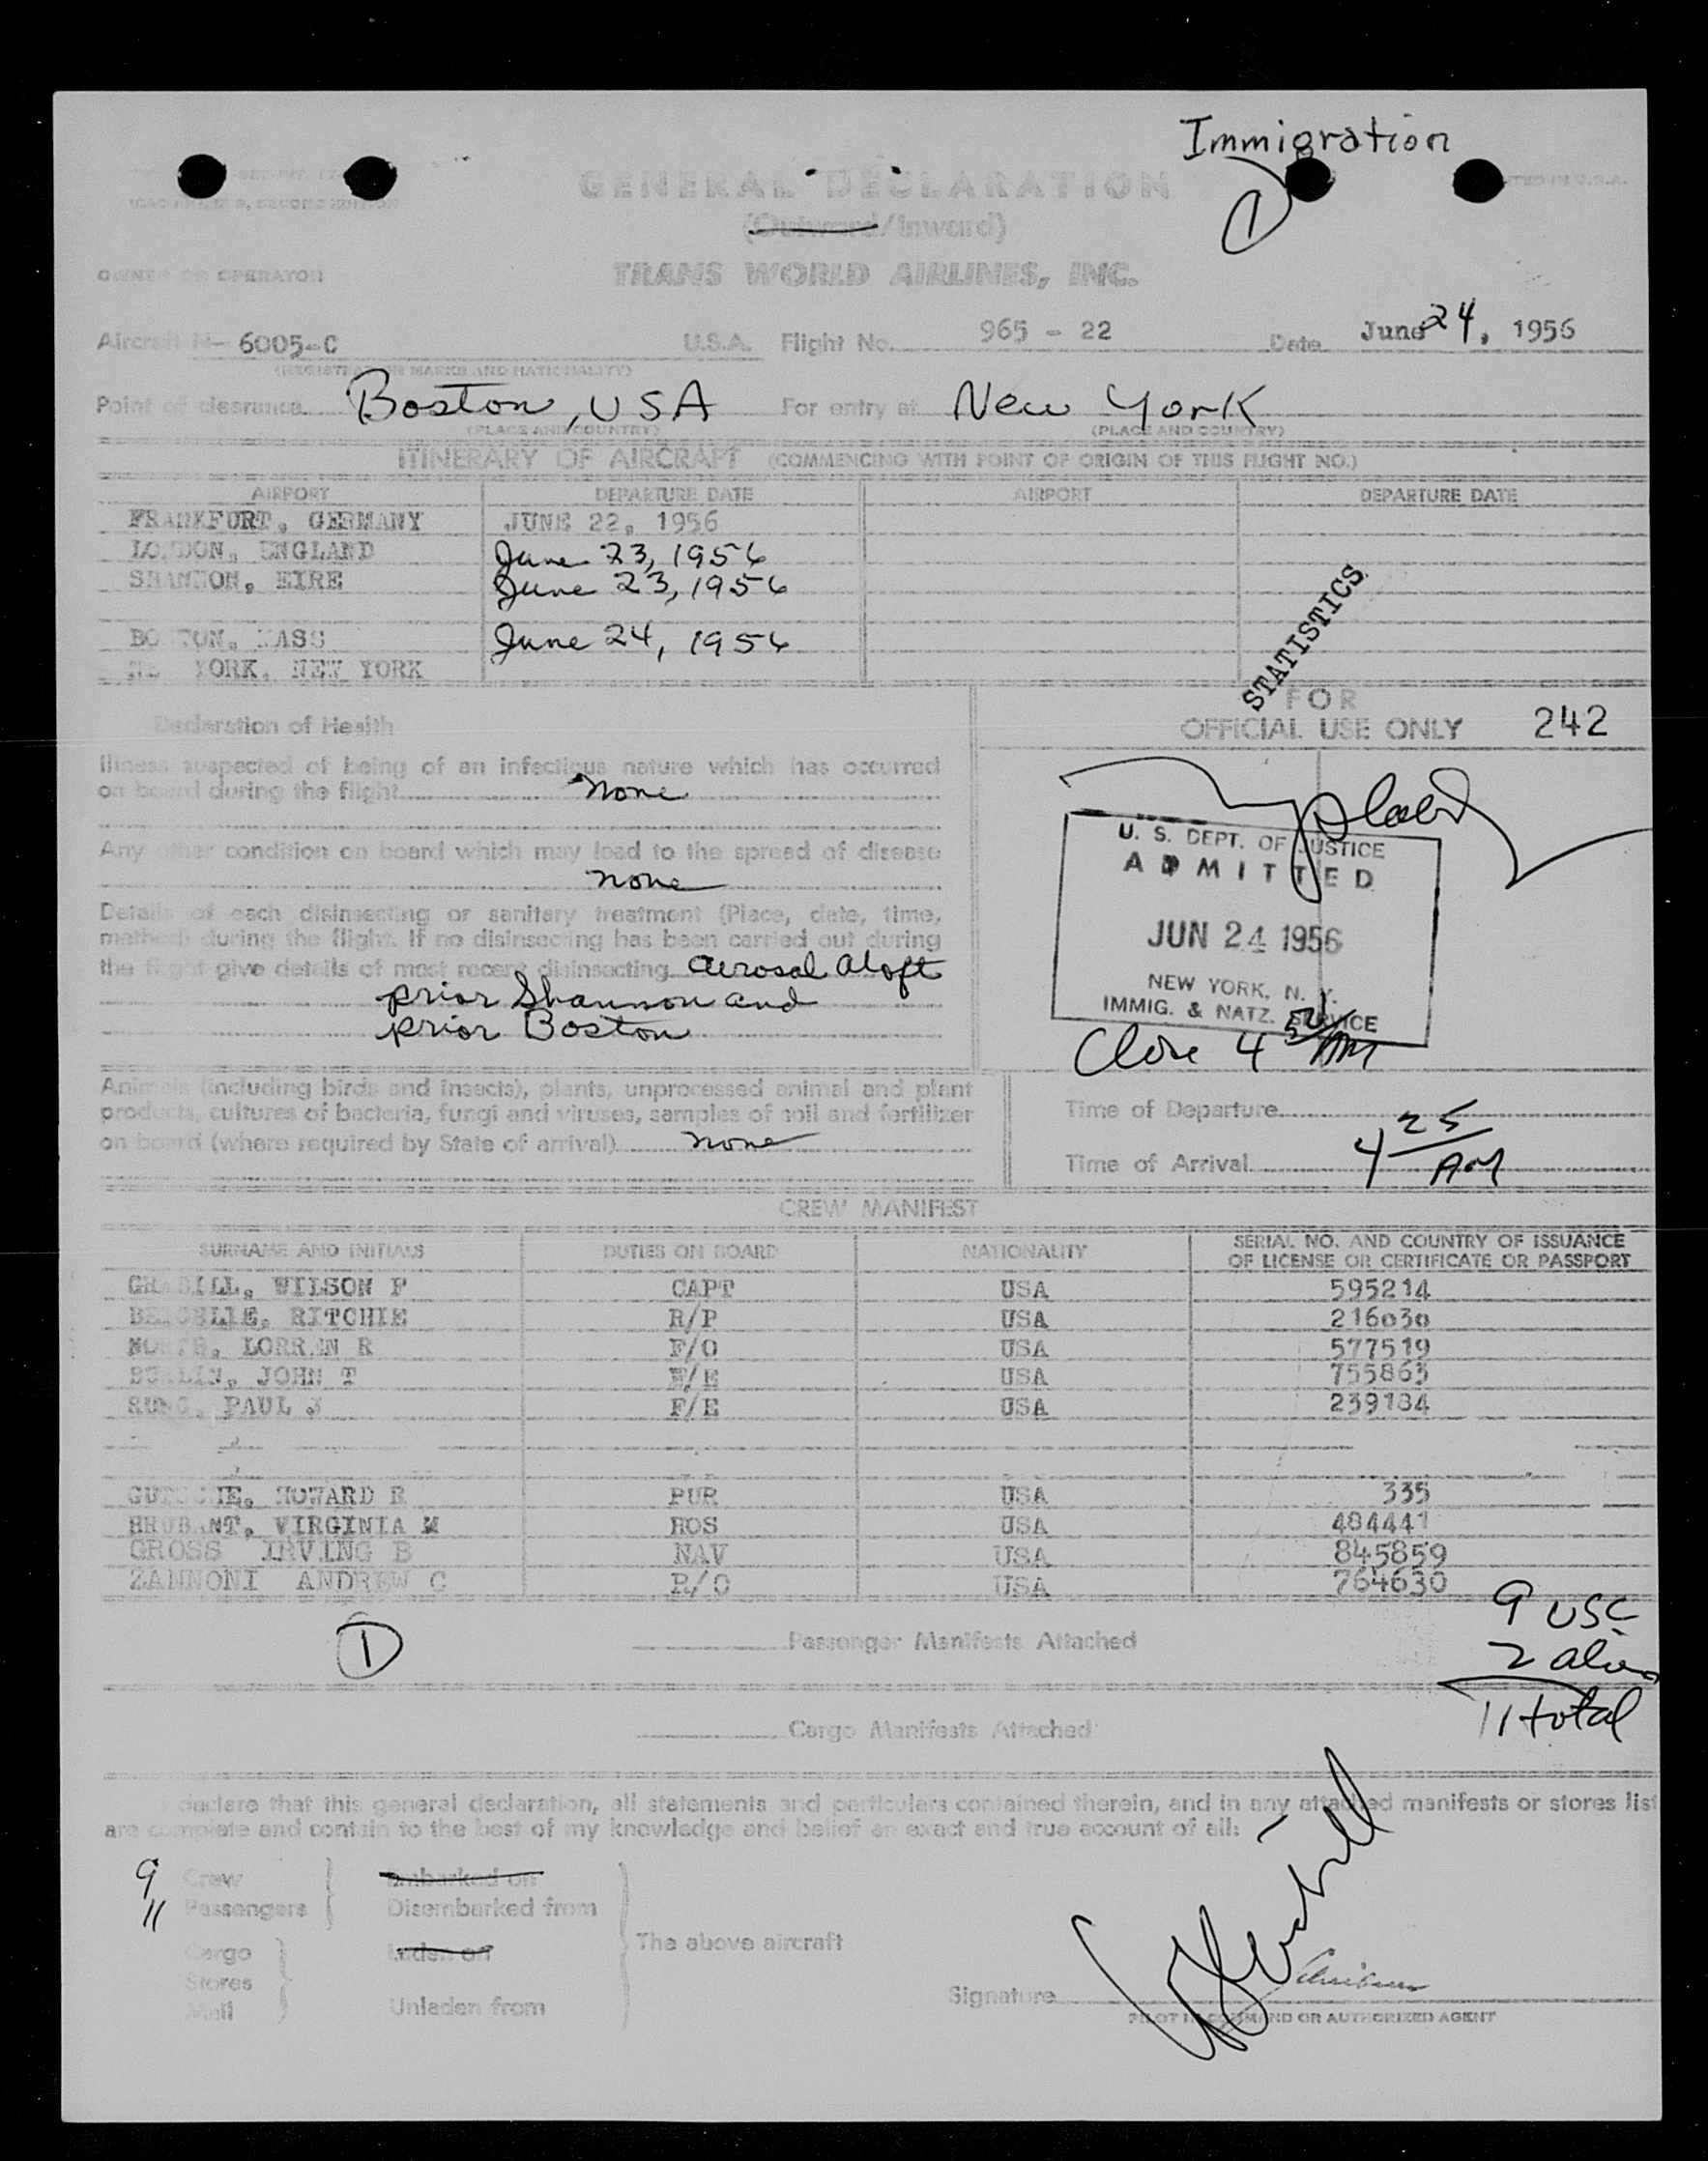 Immigration
1
GENERAL DECLARATION
(Outward/Inward)
OWNER OR OPERATOR TRANS WORLD AIRLINES, INC.
Aircraft N- 6005-C U.S.A. Flight No. 965 - 22 Date June 24, 1956
(REGISTRATION MARKS AND NATIONALITY)
Point of clearance Boston, USA For entry at New York
(PLACE AND COUNTRY) (PLACE AND COUNTRY)
ITINERARY OF AIRCRAFT (COMMENCING WITH POINT OF ORIGIN OF THIS FLIGHT NO.)
AIRPORT DEPARTURE DATE AIRPORT DEPARTURE DATE
FRANKFURT, GERMANY JUNE 22, 1956
LONDON, ENGLAND June 23, 1956
SHANNON, EIRE June 23, 1956
BOSTON, MASS June 24, 1956
NEW YORK, NEW YORK
STATISTICS
Declaration of Health
Illness suspected of being of an infectious nature which has occurred
on board during the flight none
Any other condition on board which may lead to the spread of disease
none
Details of each disinsecting or sanitary treatment (Place, date, time,
method) during the flight. If no disinsecting has been carried out during
the flight give details of most recent disinsecting Aerosol Aloft
prior Shannon and
prior Boston
Animals (including birds and insects), plants, unprocessed animal and plant
products, cultures of bacteria, fungi and viruses, samples of soil and fertilizer
on board (where required by State of arrival) none
FOR
OFFICIAL USE ONLY 242
U. S. DEPT. OF JUSTICE
ADMITTED
JUN 24 1956
NEW YORK, N. Y.
IMMIG. & NATZ. SERVICE
Close 4 50 AM
Time of Departure
Time of Arrival 4 25 AM
CREW MANIFEST
SURNAME AND INITIALS DUTIES ON BOARD NATIONALITY SERIAL NO. AND COUNTRY OF ISSUANCE
OF LICENSE OR CERTIFICATE OR PASSPORT
WILSON F CAPT USA 595214
RITCHIE R/P USA 216030
LORRAN R F/O USA 577519
JOHN T F/E USA 755863
PAUL J F/E USA 239184
HOWARD R PUR USA 335
VIRGINIA M HOS USA 484441
GROSS IRVING B NAV USA 845859
ZANNONI ANDREW C R/O USA 764630
9 USC
2 alien
11 total
1
Passenger Manifests Attached
Cargo Manifests Attached
I declare that this general declaration, all statements and particulars contained therein, and in any attached manifests or stores list
are complete and contain to the best of my knowledge and belief an exact and true account of all:
9 Crew Embarked on
11 Passengers Disembarked from
The above aircraft
Cargo Laden on
Stores
Mail Unladen from
Signature
PILOT IN COMMAND OR AUTHORIZED AGENT